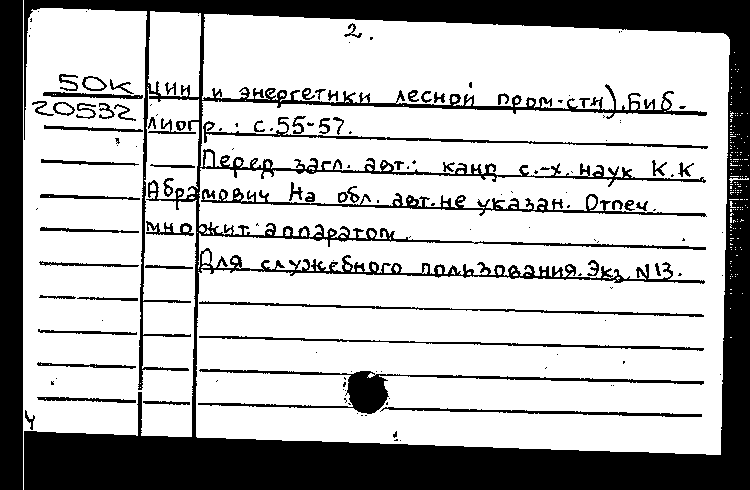 2.
50К ции и энергетики лесной пром-сти). Биб-
20532 лиогр.: с.55-57.
Перед загл. авт.: канд. с.-х. наук К.К.
Абрамович На обл. авт. не указан. Отпеч.
множит. аппаратом.
Для служебного пользования. Экз. N 13.